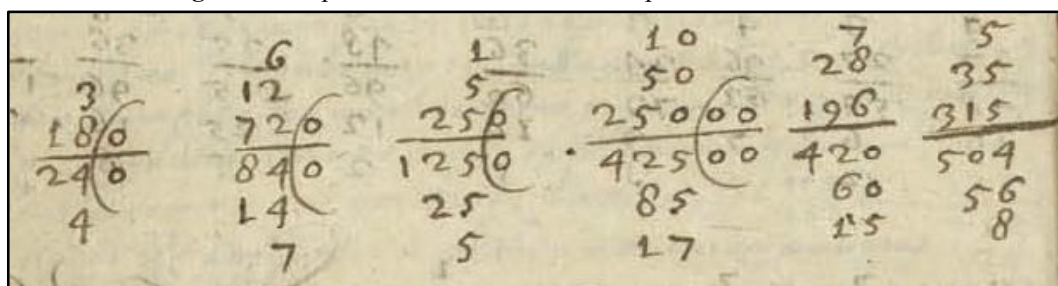 3
180
240
4
6
12
720
840
14
7
1
5
250
1250
25
5
10
50
25000
42500
85
17
7
28
196
420
60
15
5
35
315
504
56
8